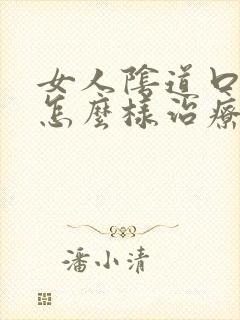 女人陰道口
怎麼樣治療
潘小清